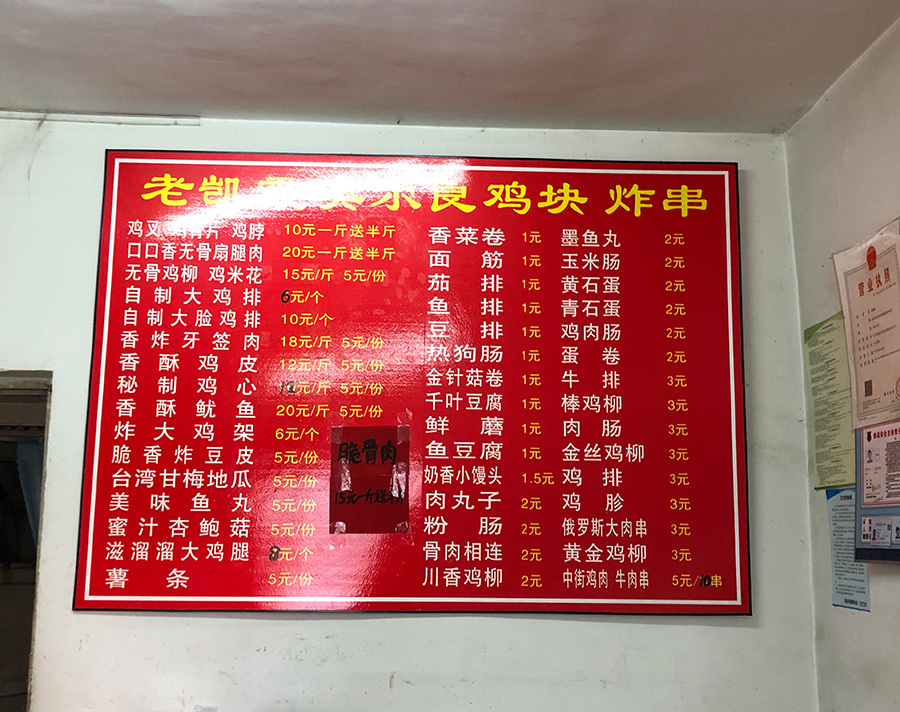 老凯 尔良鸡块 炸串
鸡叉 鸡脖 10元一斤送半斤
口口香无骨扇腿肉 20元一斤送半斤
无骨鸡柳 鸡米花 15元/斤 5元/份
自制大鸡排 6元/个
自制大脸鸡排 10元/个
香炸牙签肉 18元/斤 5元/份
香酥鸡皮 12元/斤 5元/份
秘制鸡心 元/斤 5元/份
香酥鱿鱼 20元/斤 5元/份
炸大鸡架 6元/个
脆香炸豆皮 5元/份
台湾甘梅地瓜 5元/份
美味鱼丸 5元/份
蜜汁杏鲍菇 5元/份
滋溜溜大鸡腿 8元/个
薯条 5元/份
脆骨肉
15元一斤送半斤
香菜卷 1元
面筋 1元
茄排 1元
鱼排 1元
豆排 1元
热狗肠 1元
金针菇卷 1元
千叶豆腐 1元
鲜蘑 1元
鱼豆腐 1元
奶香小馒头 1.5元
肉丸子 2元
粉肠 2元
骨肉相连 2元
川香鸡柳 2元
墨鱼丸 2元
玉米肠 2元
黄石蛋 2元
青石蛋 2元
鸡肉肠 2元
蛋卷 2元
牛排 3元
棒鸡柳 3元
肉肠 3元
金丝鸡柳 3元
鸡排 3元
鸡胗 3元
俄罗斯大肉串 3元
黄金鸡柳 3元
中街鸡肉 牛肉串 5元/10串
营业执照